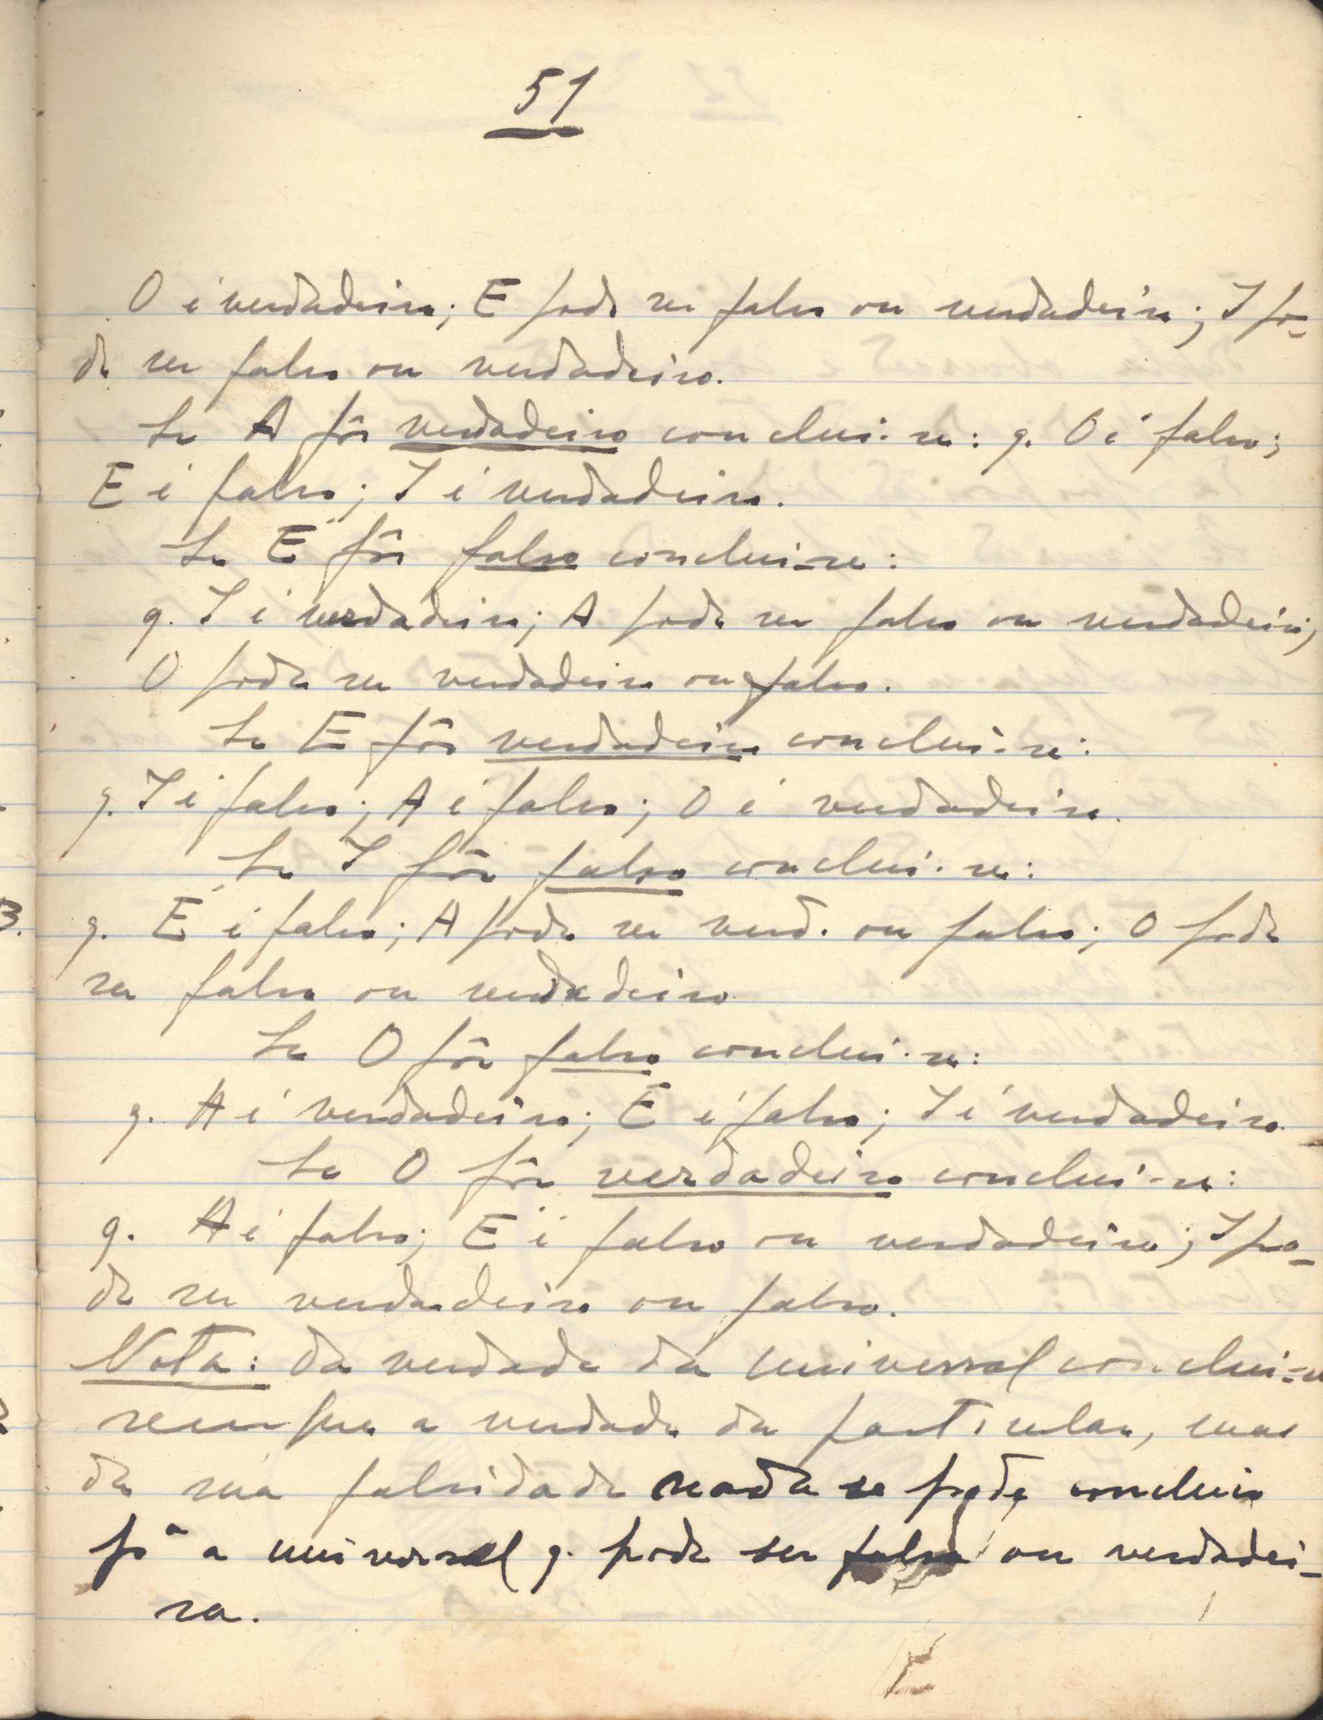 51
O é verdadeiro; E pode ser falso ou verdadeiro; I po-
de ser falso ou verdadeiro.
Se A fôr verdadeiro conclui-se: q. O é falso;
E é falso; I é verdadeiro.
Se E fôr falso conclui-se:
q. I é verdadeiro; A pode ser falso ou verdadeiro;
O pode ser verdadeiro ou falso.
Se E fôr verdadeiro conclui-se:
q. I é falso; A é falso; O é verdadeiro.
Se I fôr falso conclui-se:
q. E é falso; A pode ser verd. ou falso; O pode
ser falso ou verdadeiro
Se O fôr falso conclui-se:
q. A é verdadeiro; E é falso; I é verdadeiro.
Se O fôr verdadeiro conclui-se:
q. A é falso; E é falso ou verdadeiro; I po-
de ser verdadeiro ou falso.
Nota: da verdade da universal conclui-se
sempre a verdade da particular, mas
da sua falsidade nada se pode concluir
pª a universal q. pode ser falsa ou verdadei-
ra.